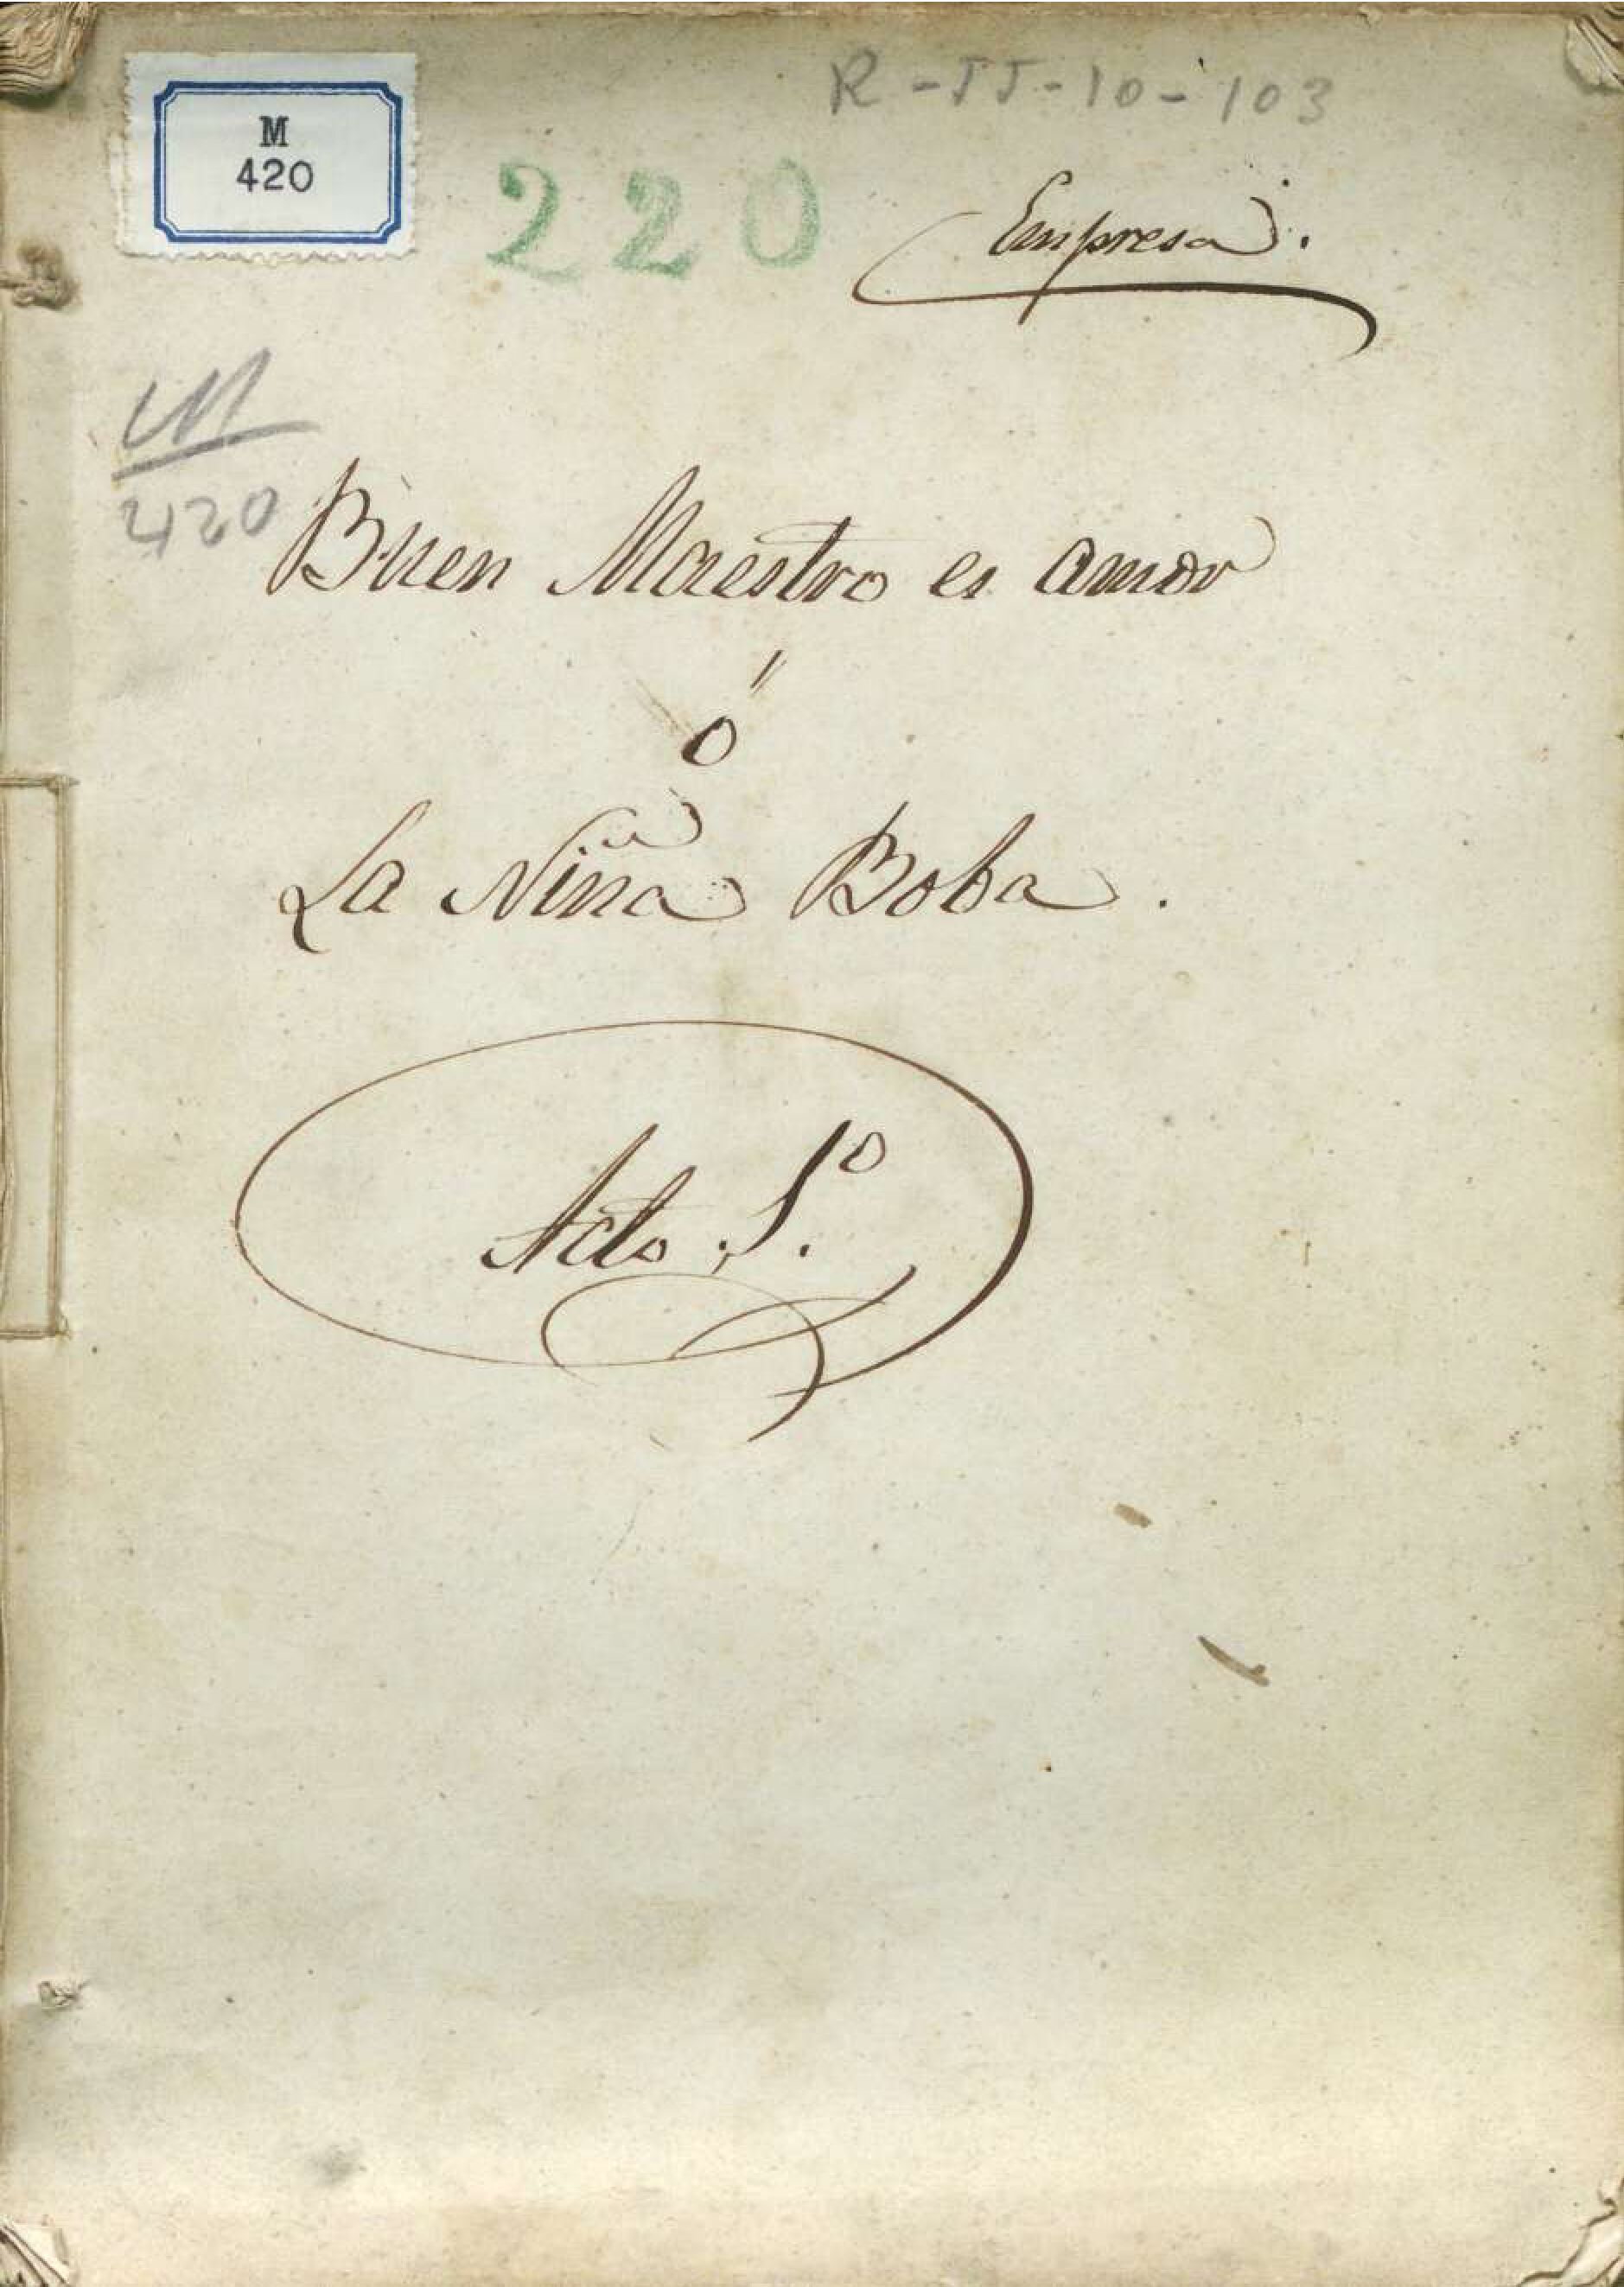 R-55-10-103
M
420
220
Empresa.
M
420
Buen Maestro es amor
ó
La Niña Boba.
Acto 1.º